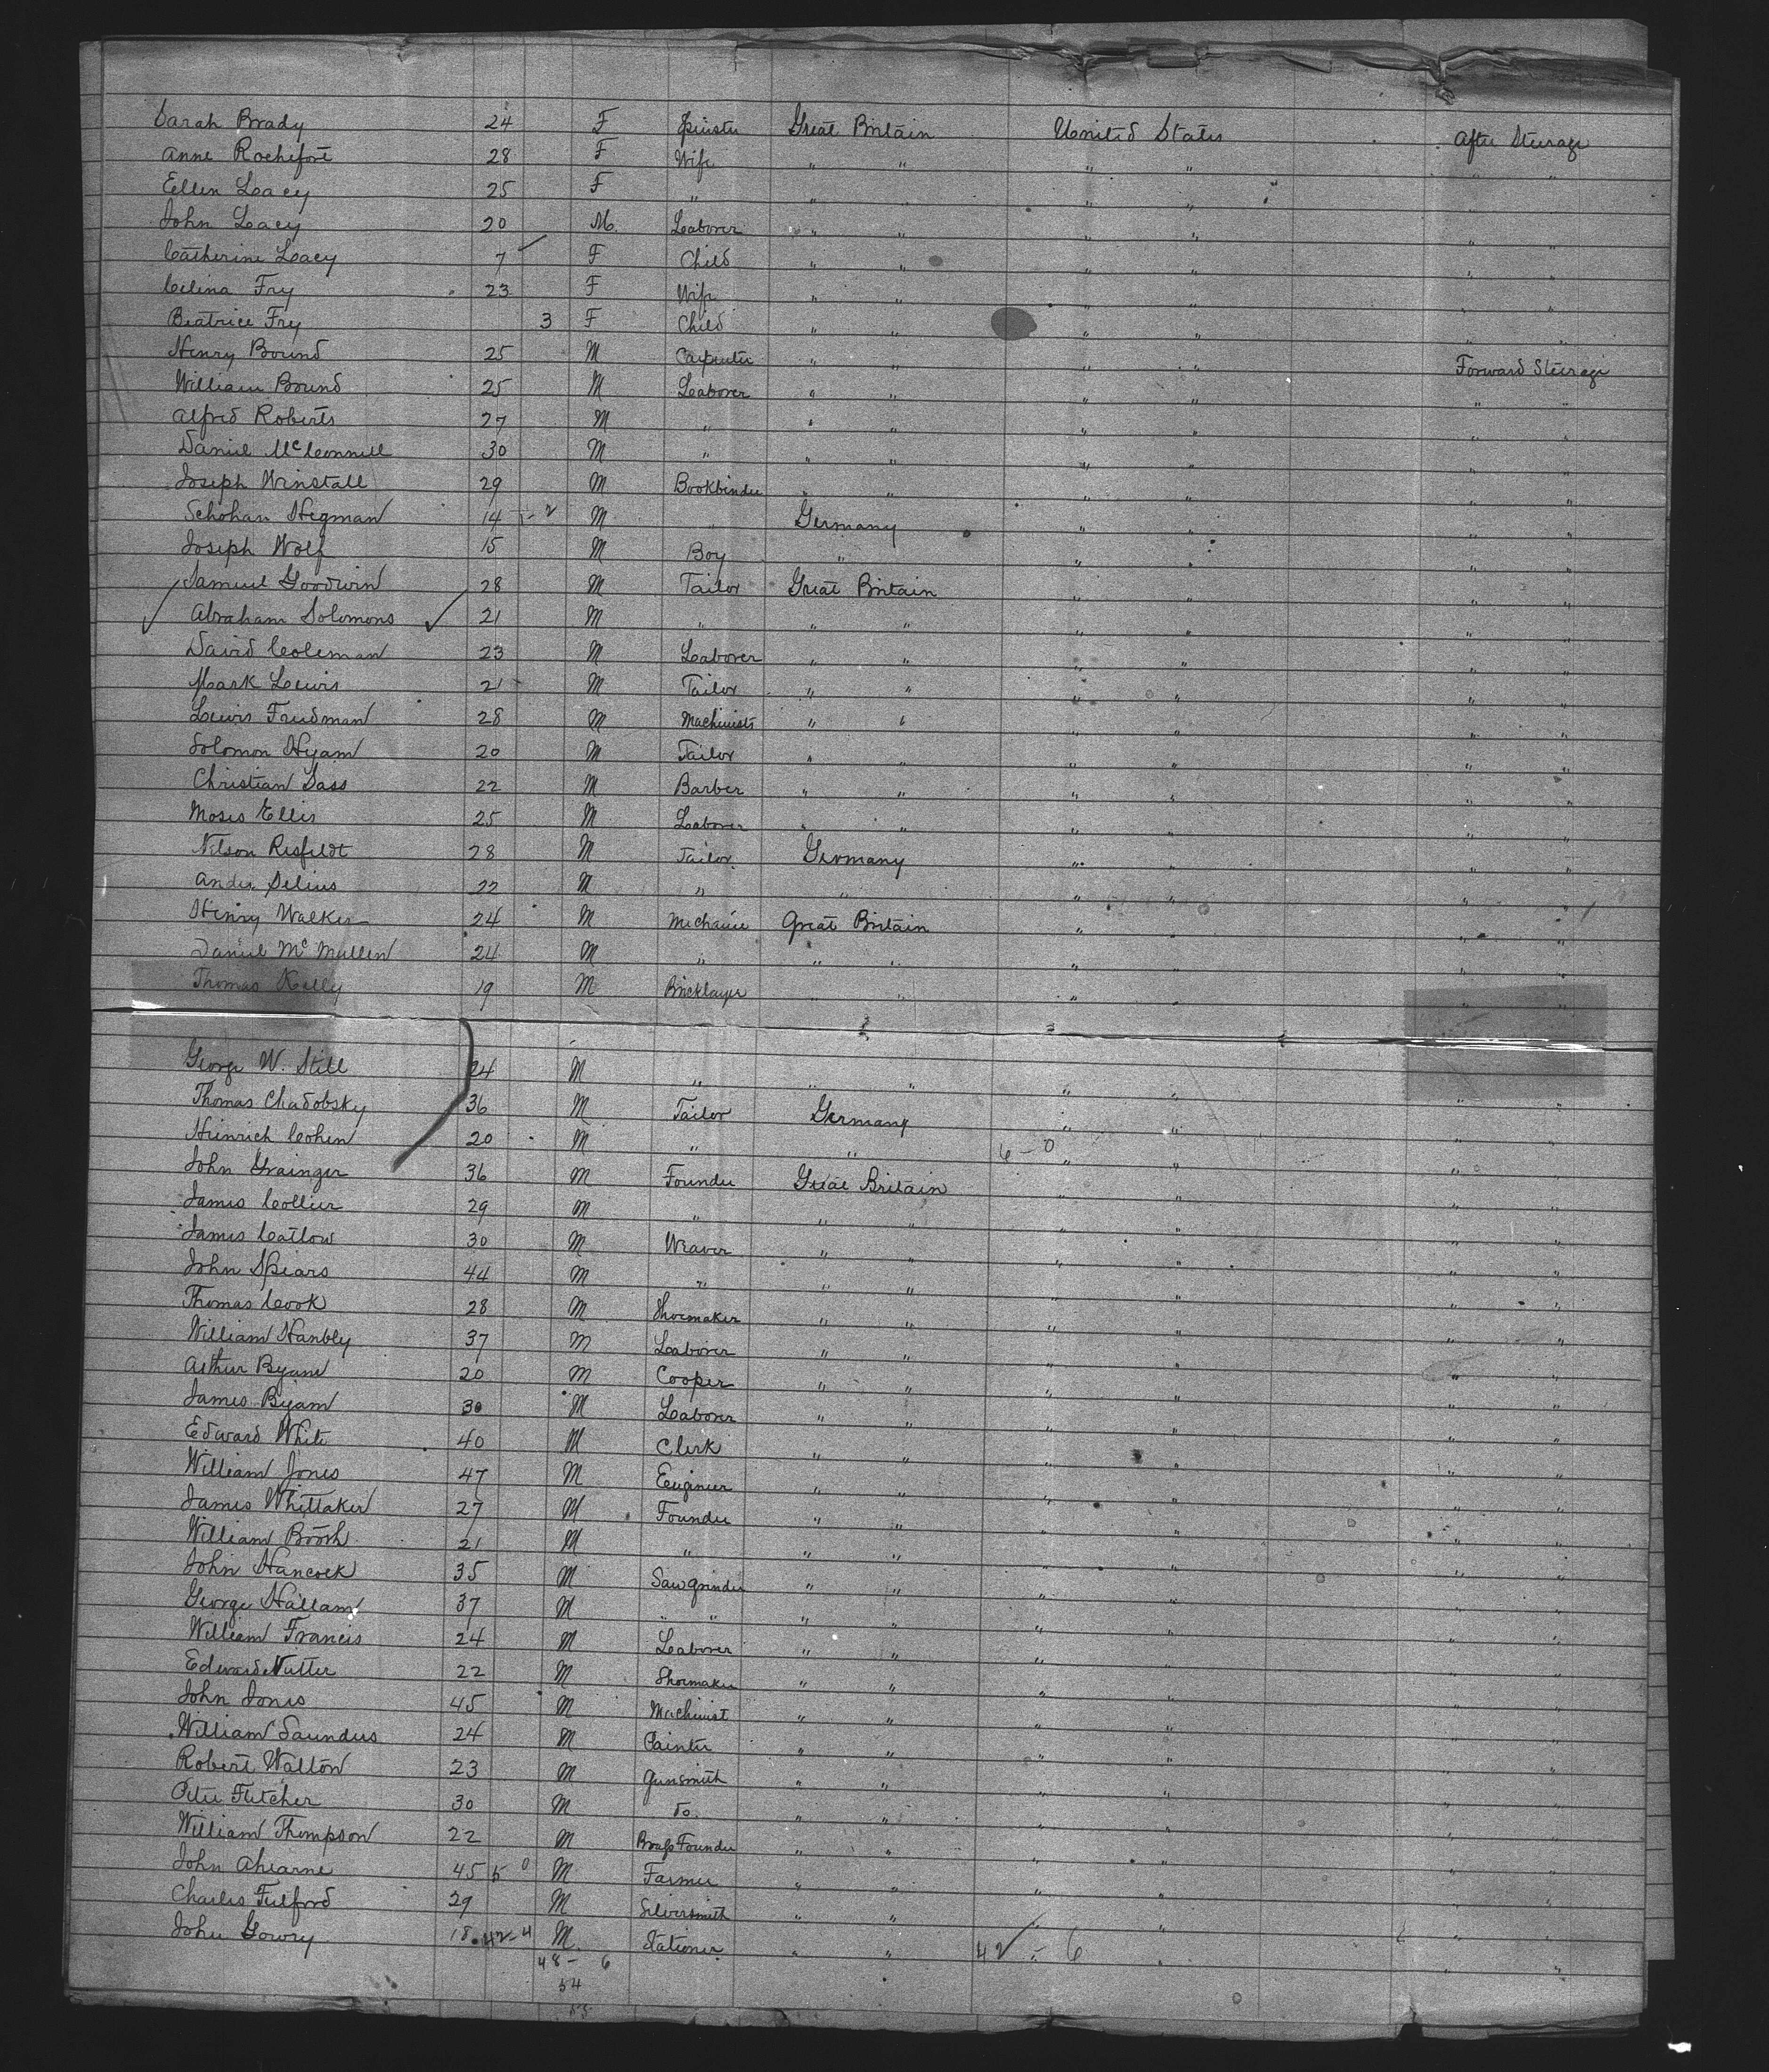 Sarah Brady 24 F Spinster Great Britain United States After Steerage
Anne Rochefort 28 F Wife " " " " " "
Ellen Leacy 25 F " " " " " " "
John Leacy 20 M. Laborer " " " " " "
Catherine Leacy 7 F Child " " " " " "
Celina Fry 23 F Wife " " " " " "
Beatrice Fry 3 F Child " " " " " "
Henry Bound 25 M Carpenter " " " " Forward Steerage
William Bound 25 M Laborer " " " " " "
Alfred Roberts 27 M " " " " " " "
Daniel McConnell 30 M " " " " " " "
Joseph Winstall 29 M Bookbinder " " " " " "
Schohan Hegman 14 1-2 M " Germany " " " "
Joseph Wolf 15 M Boy " " " " "
Samuel Goodwin 28 M Tailor Great Britain " " " "
Abraham Solomons 21 M " " " " " " "
David Coleman 23 M Laborer " " " " " "
Mark Lewis 21 M Tailor " " " " " "
Lewis Friedman 28 M Machinist " " " " " "
Solomon Hyam 20 M Tailor " " " " " "
Christian Sass 22 M Barber " " " " " "
Moses Ellis 25 M Laborer " " " " " "
Nilson Risfeldt 28 M Tailor Germany " " " "
Andr. Selius 22 M " " " " " "
Henry Walker 24 M Mechanic Great Britain " " " "
Daniel McMullen 24 M " " " " " " "
Thomas Kelly 19 M Bricklayer " " " " " "
George W. Still 24 M " " " " " " "
Thomas Chadobsky 36 M Tailor Germany " " " "
Heinrich Cohen 20 M " " 6-0 " " " "
John Grainger 36 M Founder Great Britain " " " "
James Collier 29 M " " " " " " "
James Catlow 30 M Weaver " " " " " "
John Spears 44 M " " " " " " "
Thomas Cook 28 M Shoemaker " " " " " "
William Hanbly 37 M Laborer " " " " " "
Arthur Byam 20 M Cooper " " " " " "
James Byam 30 M Laborer " " " " " "
Edward White 40 M Clerk " " " " " "
William Jones 47 M Engineer " " " " " "
James Whittaker 27 M Founder " " " " " "
William Booth 21 M " " " " " " "
John Hancock 35 M Saw grinder " " " " " "
George Hallam 37 M " " " " " " " "
William Francis 24 M Laborer " " " " " "
Edward Nutter 22 M Shoemaker " " " " " "
John Jones 45 M Machinist " " " " " "
William Saunders 24 M Painter " " " " " "
Robert Walton 23 M Gunsmith " " " " " "
Peter Fletcher 30 M Do. " " " " " "
William Thompson 22 M Brass Founder " " " " " "
John Ahearne 45 5 0 M Farmer " " " " " "
Charles Fulford 29 M Silversmith " " " " " "
John Gowry 18 42-4 M. Stationer " " 42-6 " " "
48-6
54
55